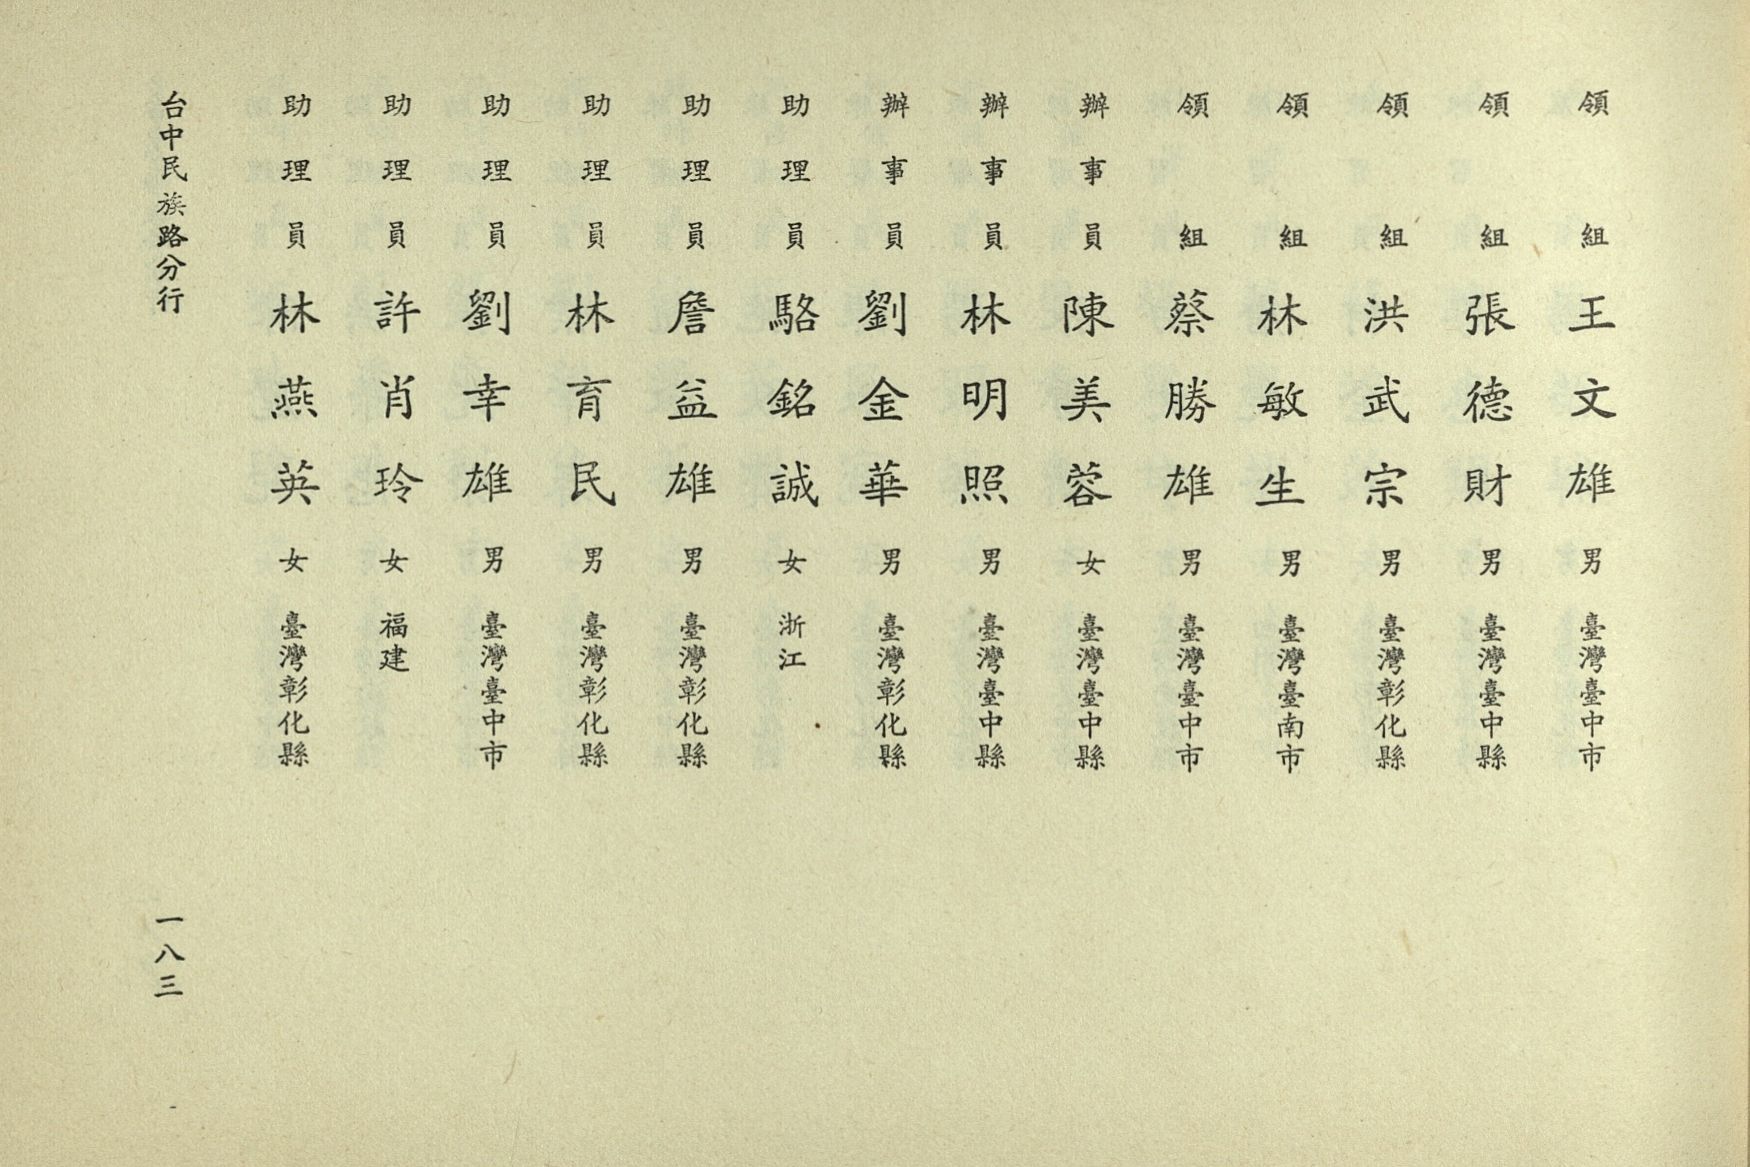 領組王文雄男臺灣臺中市
領組張德財男臺灣臺中縣
領組洪武宗男臺灣彰化縣
領組林敏生男臺灣臺南市
領組蔡勝雄男臺灣臺中市
辦事員陳美蓉女臺灣臺中縣
辦事員林明照男臺灣臺中縣
辦事員劉金華男臺灣彰化縣
助理員駱銘誠女浙江
助理員詹益雄男臺灣彰化縣
助理員林育民男臺灣彰化縣
助理員劉幸雄男臺灣臺中市
助理員許肖玲女福建
助理員林燕英女臺灣彰化縣
台中民族路分行
一八三